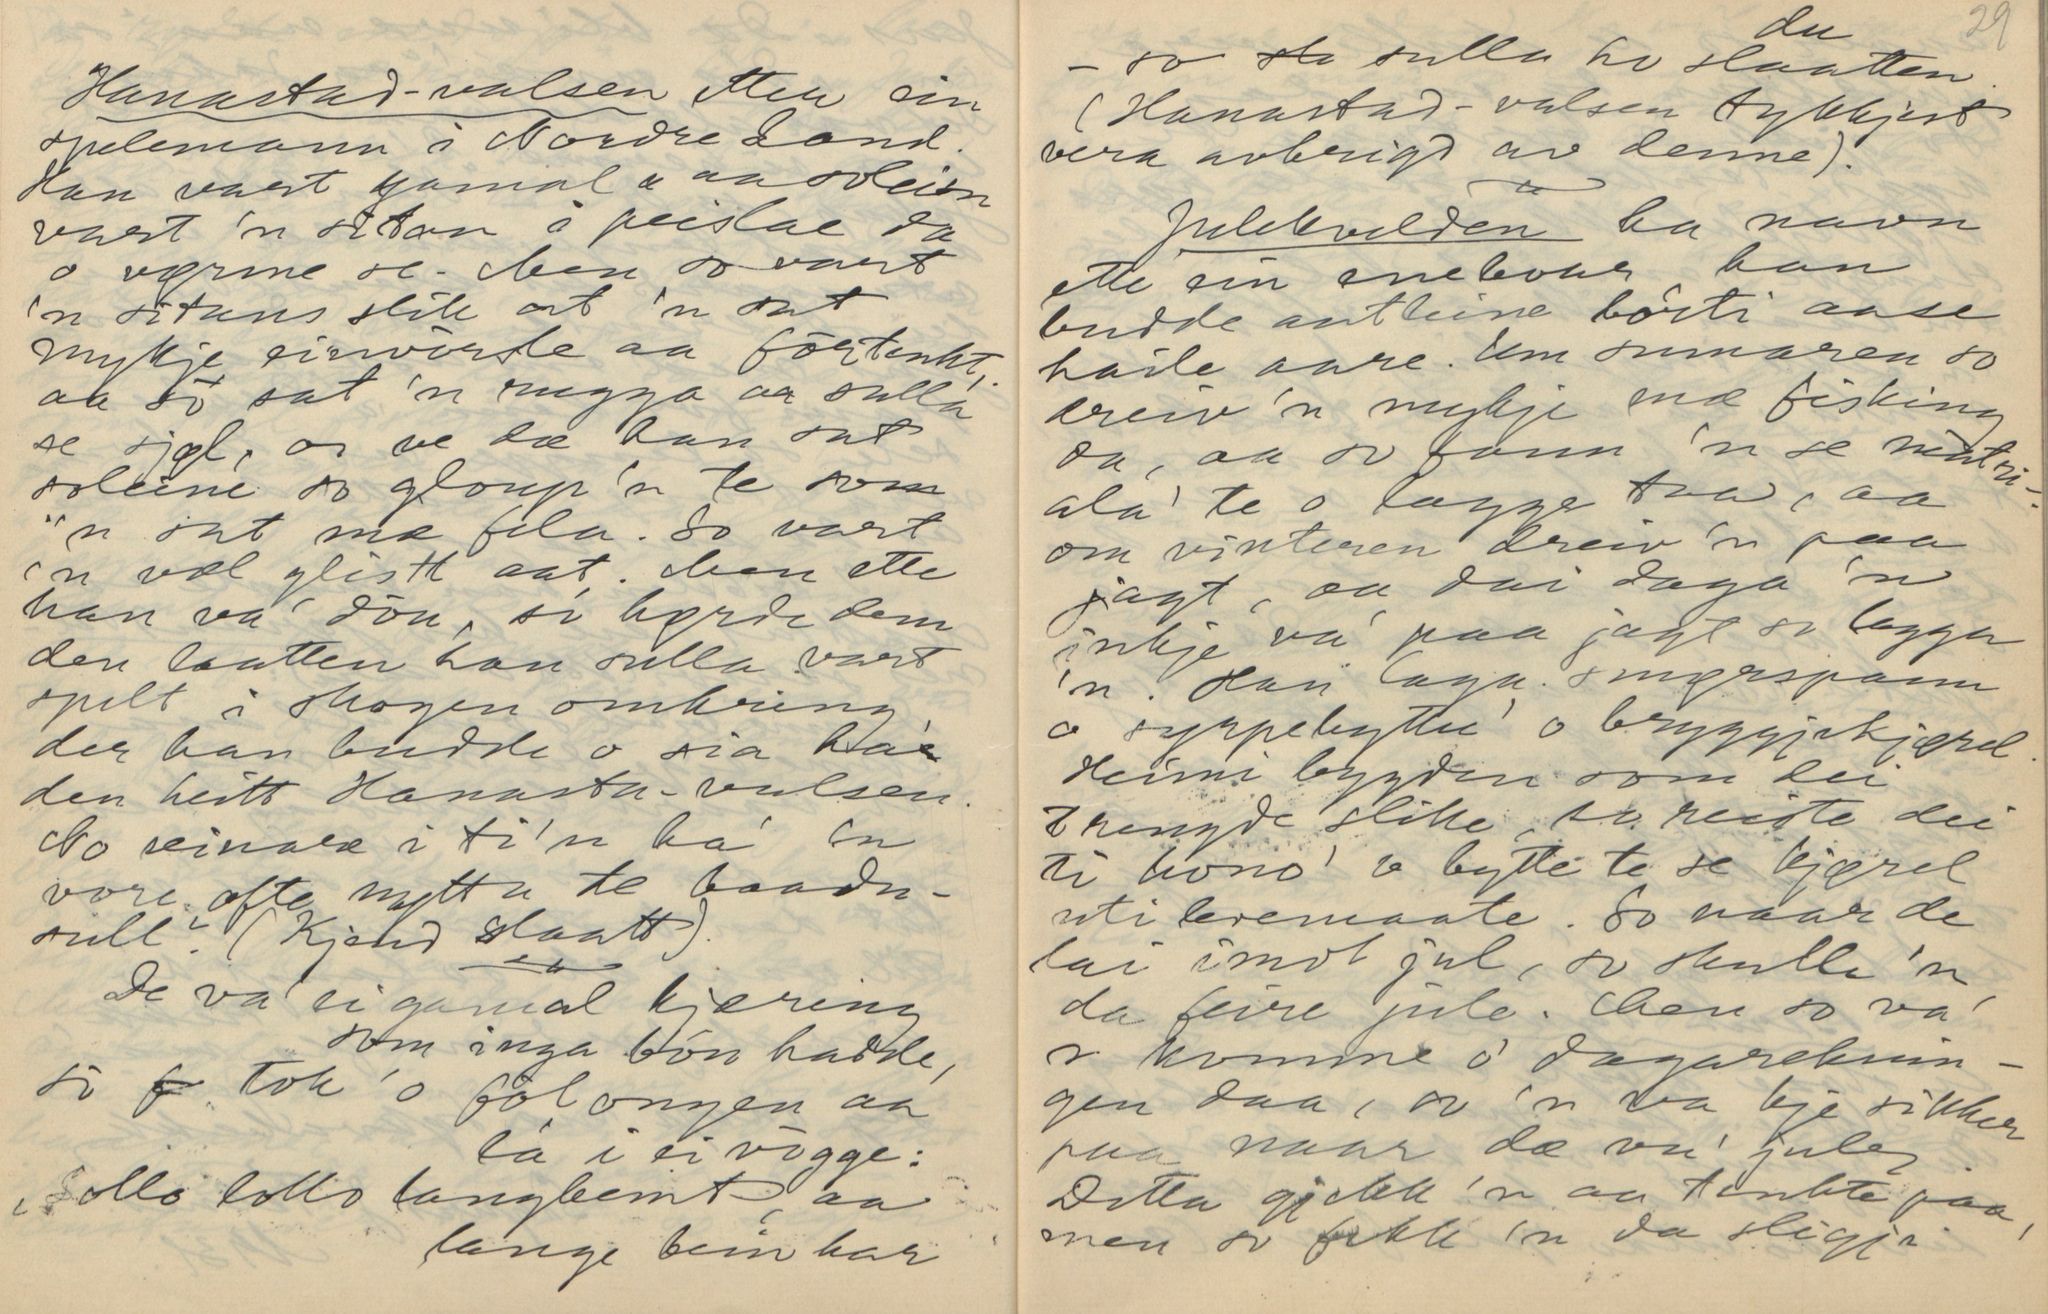 "Hanastad-valsen etter ein
spelemann i Nordre Land.
Han vart gamal & aa soleisn
vart 'n sitan i peislae da
o værme se. Men so vart
'n sitans slik at 'n sat
mykje einvörde aa förtenkt,
aa sô sat 'n rugga aa sulla
se sjøl, os ve dæ han sat
soleine so gloup'n te som
"n sat mæ fela. So vart
'n væl glistt aat. Men ette
han va' döu, sô hørde dem
den laatten han sulla vart
spelt i skogen omkring
der han budde o sia ha'
den heitt Hanasta-valsen.
No seinare i ti'n ha' 'n
vore ofte nytta te baadn-
sull". (Kjend slaatt).
De va' ei gamal kjæring
som inga bôn hadde,
sô tok 'o fôlongen aa
la i ei vôgge:
"Sollo lollo langbeint, aa
lange bein har
29
du
- so sulla ho slaatten.
(Hanastad-valsen tykkjest
vera avbrigd av denne).
Julekvelden ha navn
ette ein enebour han
budde aatleine bôrti aase
heile aare. Um sumaren so
dreiv 'n mykje mæ fisking
da, aa so fann 'n se matri-
ala' te o lagge tra, aa
om vinteren dreiv 'n paa
jagt, aa dai daga 'n
inkje va' paa jagt so lagga
'n. Han laga smørspann
o syrpebytte' o bryggjekjørel.
Heimi bygden som dei
trengde slike, so reiste dei
ti hono' o bytte te se kjørel
uti levemaate. So naar de
lai imot jul, so skulle 'n
da feire jule. Men so va'
'n komme ô dagareknin-
gen daa, so 'n va kje sikker
paa naar dæ va' jule,
Detta gjekk 'n aa tenkte paa,
men so fekk 'n da sligji